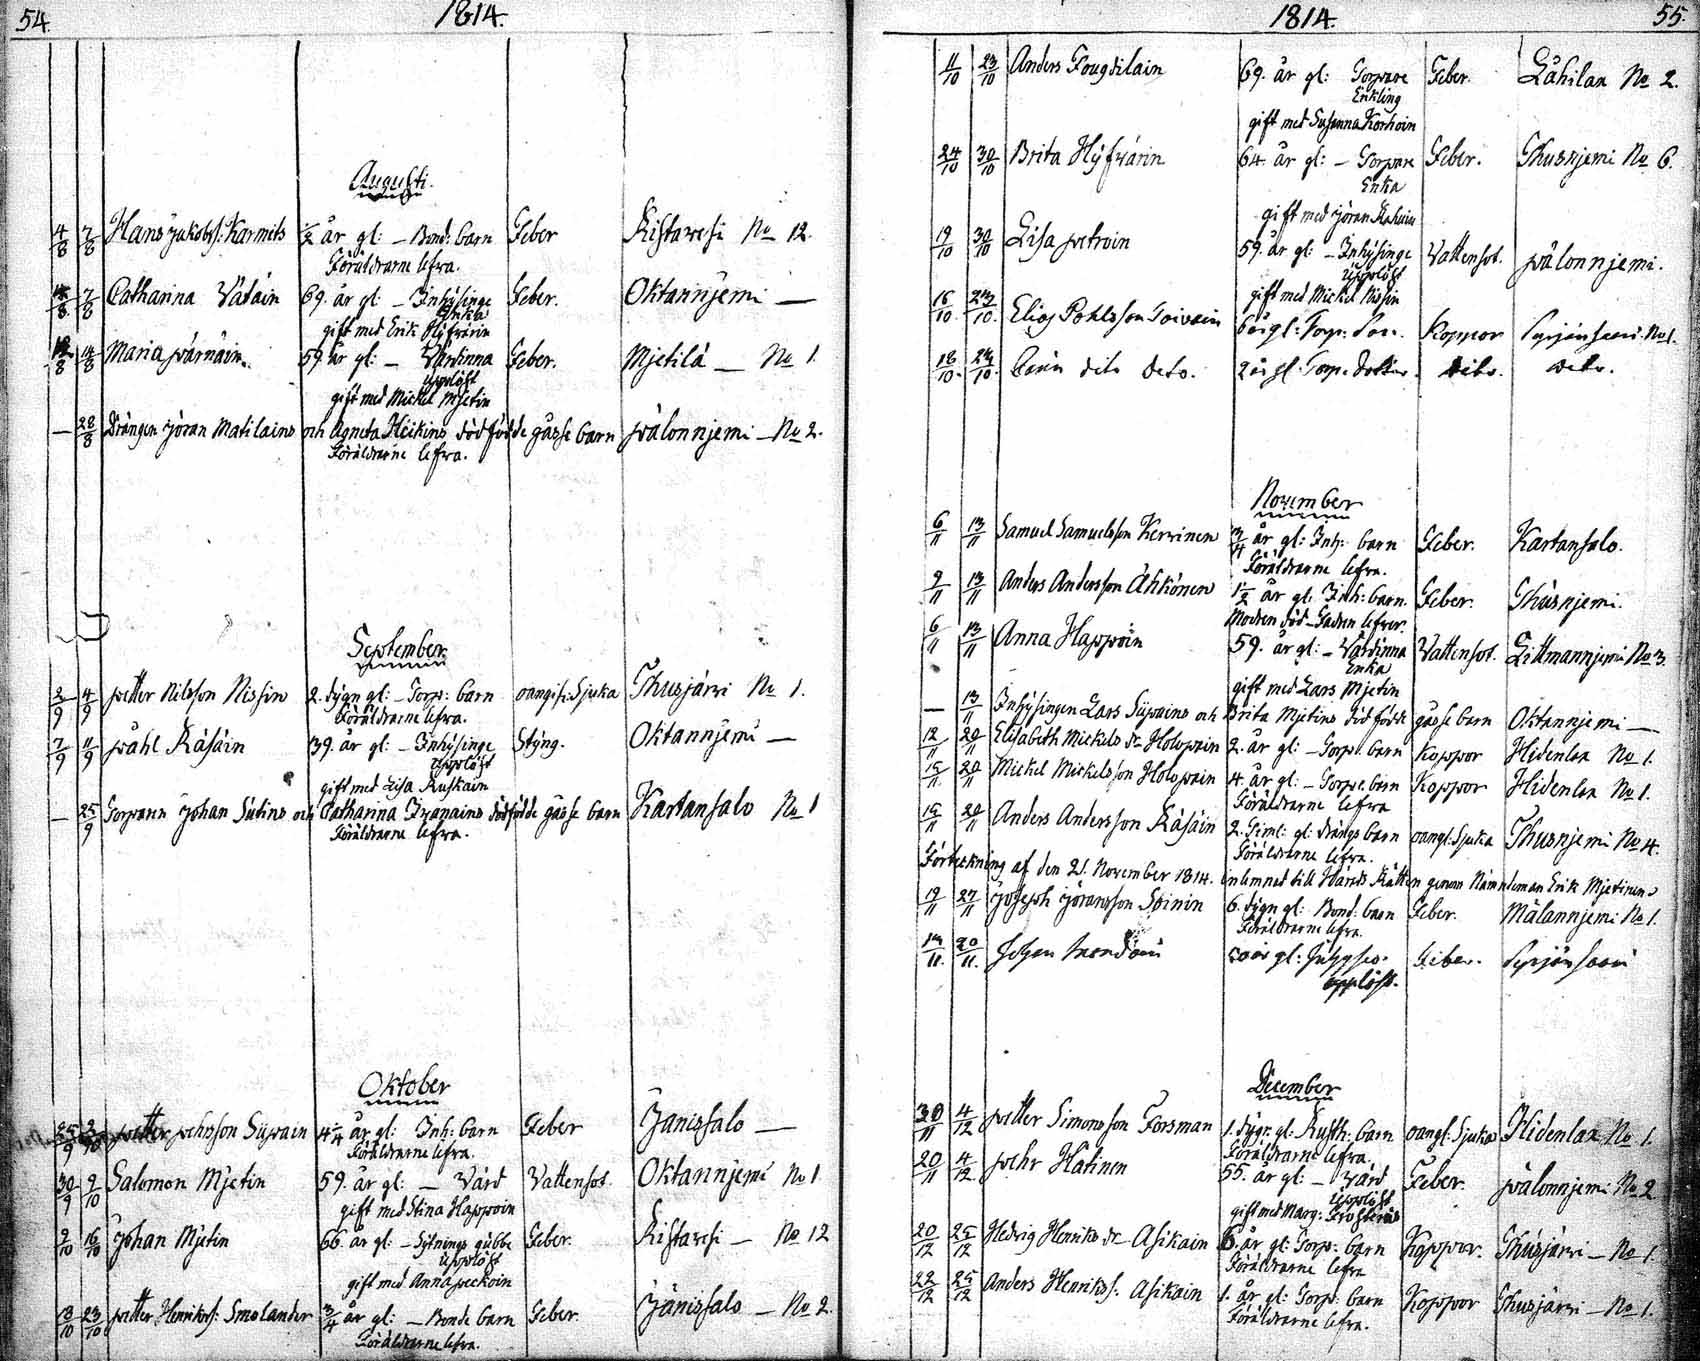 54.
1814.
Augusti.
4/8 7/8 Hans Jakobss: Karmits ½ år gl: – Bond: barn Feber Kistavesi No 12.
Föräldrarne lefva.
7/8 Catharina Vätäin 69. år gl: – Inhysinge Feber. Oktannjemi —
Enka
gift med Erik Hyfvärin
14/8 Maria Pärnäin. 59 år gl: – Värdinna Feber. Mjetilä — No 1.
Upplöst
gift med Mickel Mjetin
— 28/8 Drängen Jöran Matilains och Agneta Heikins död födde gåsse barn Pälonnjemi – No 2.
Föräldrarne lefva.
September
2/9 4/9 Petter Nilsson Nissin 2. dygn gl: – Torp: barn oangif: Sjuka Thusjärvi No 1.
Föräldrarne lefva.
7/9 11/9 Påhl Räsäin 39. år gl: – Inhysinge Styng. Oktannjemi —
Upplöst
gift med Lisa Ruskain
— 25/9 Torparen Johan Sutins och Catharina Ivanains dödfödde gåsse barn Kartansalo No 1
Föräldrarne lefva.
Oktober
25/9 2/10 Petter Pehrsson Süvain 4¼ år gl: Inh: barn Feber Jänissalo —
Föräldrarne lefva.
30/9 9/10 Salomon Mjetin 59. år gl: – Värd Vattensot. Oktannjemi No 1
gift med Stina Happoin
9/10 16/10 Johan Mjetin 66. år gl: – Sytnings gubbe Feber. Kistavesi – No 12
Upplöst
gift med Anna Peckoin
13/10 23/10 Petter Henrikss: Smolander ¾ år gl: – Bonde barn Feber. Jänissalo – No 2.
Föräldrarne lefva.
1814.
55.
11/10 23/10 Anders Fougdilain 69. år gl: Torpare Feber. Lähilax No 2.
Enkling
gift med Susanna Korhoin
24/10 30/10 Brita Hyfvärin 64. år gl: – Torpare Feber. Thusnjemi No 6.
Enka
gift med Jöran
19/10 30/10 Lisa Petroin 59. år gl: – Inhysinge Vattensot. Pälonnjemi.
Upplöst
gift med Mickel Nissin
16/10. 23/10. Elias Pohlsson Toivain 6 år gl: Torp: Son. Koppor No 1.
18/10. 23/10. dito dito. 2 år gl: Torp: Dotter. dito. dito.
November
6/11 13/11 Samuel Samuelsson Kervinen ¾ år gl: Inh: barn Feber. Kartansalo.
Föräldrarne lefva.
9/11 13/11 Anders Andersson Ähkönen ½ år gl: Inh: barn. Feber. Thusnjemi.
Modren död – Fadren lefver.
6/11 13/11 Anna Happoin 59. år gl: – Värdinna Vattensot. Littmannjemi No 3.
Enka
gift med Lars Mjetin
— 13/11 Inhysingen Lars Süvains och Brita Mjetins död födde gåsse barn Oktannjemi —
12/11 20/11 Elisabeth Mickels dr Holopain 2. år gl: – Torp: barn Koppor Hidenlax No 1.
15/11 20/11 Mickel Mickelsson Holopain 4. år gl: – Torpe barn Koppor Hidenlax No 1.
Föräldrarne lefva
15/11 20/11 Anders Andersson Räsäin 2. Timl: gl: drängs barn oangl: Sjuka Thusnjemi No 4.
Föräldrarne lefva.
Förteckning af den 21. November 1814. inlemnad till Härads Rätten genom Nämndeman Erik Mjetinen
19/11 27/11 Joseph Jöransson Soinin 6. dygn gl: Bond: barn Feber. Mälannjemi No 1.
Föräldrarne lefva.
14/11. 20/11. Johan år gl: Feber.
upplöst.
December
30/11 4/12 Petter Simonsson Forsman 1. dygn. gl: Rusth: barn oangl: Sjuka Hidenlax No 1.
Föräldrarne lefva.
20/11 4/12 Pehr Hätinen 55. år gl: – Värd Feber. Pälonnjemi No 2
Upplöst
gift med Marg:
20/12 25/12 Hedvig Henriks dr Asikain 6. år gl: Torp: barn Koppor. Thusjärvi – No 1.
Föräldrarne lefva
22/12 25/12 Anders Henrikss: Asikain 1. år gl: Torp: barn Koppor Thusjärvi – No 1.
Föräldrarne lefva.